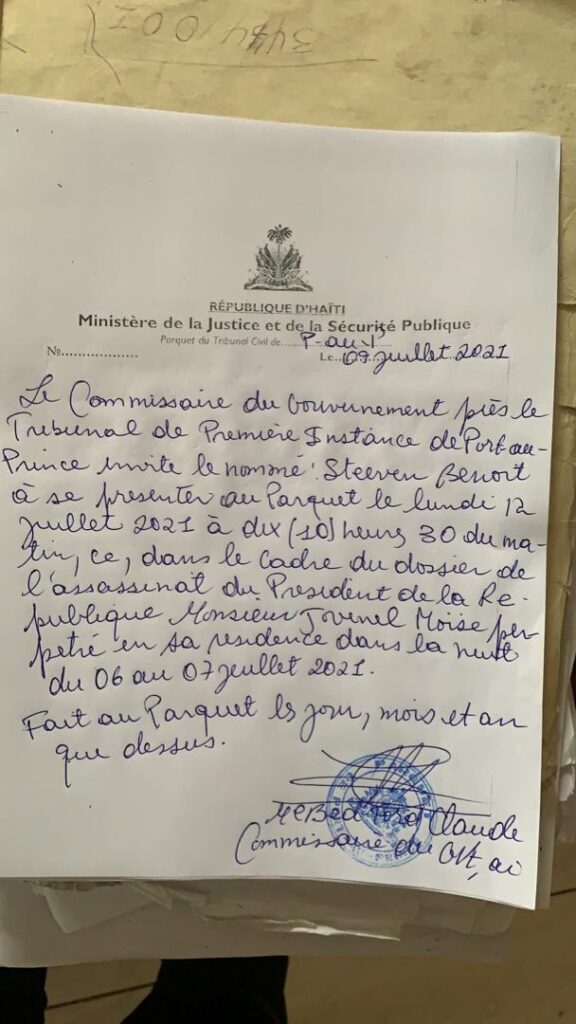 344/001
RÉPUBLIQUE D'HAÏTI
Ministère de la Justice et de la Sécurité Publique
Parquet du Tribunal Civil de P-au-P
No..................
Le 09 juillet 2021
Le Commissaire du Gouvernement près le
Tribunal de Première Instance de Port-au-
Prince invite le nommé : Steeven Benoit
à se presenter au Parquet le lundi 12
juillet 2021 à dix (10) heures 30 du ma-
tin, ce, dans le cadre du dossier de
l'assassinat du President de la Re-
publique Monsieur Jovenel Moise per-
petré en sa residence dans la nuit
du 06 au 07 juillet 2021.
Fait au Parquet les jour, mois et an
que dessus.
Me Bed-Ford Claude
Commissaire du Gvt, ai